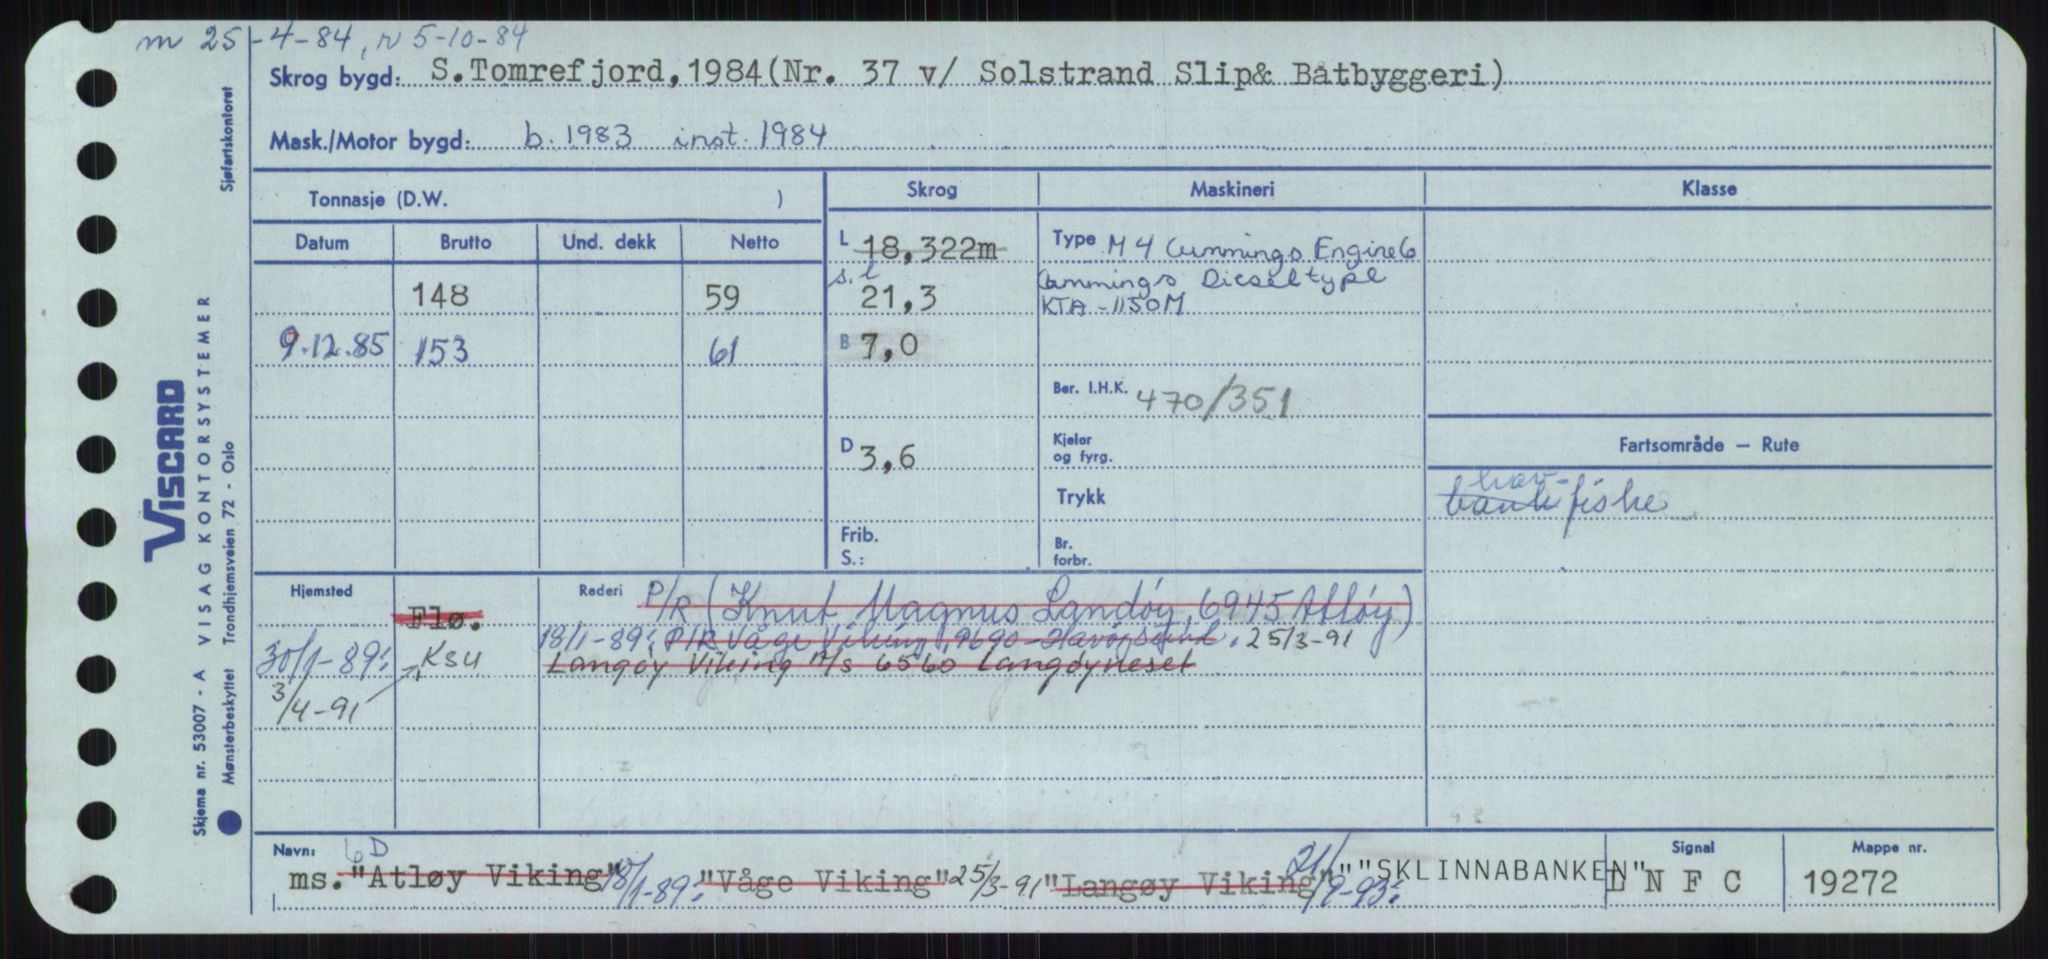 m 25-4-84, r 5-10-84
Skrog bygd: S.Tomrefjord,1984(Nr. 37 v/ Solstrand Slip& Båtbyggeri)
Mask./Motor bygd: b. 1983 inst. 1984
Tonnasje (D.W. )
Skrog
Maskineri
Klasse
Datum
Brutto
Und. dekk
Netto
L 18,322m
Type M 4 Cummings Engine 6
s.l
Cummings Dieseltype
148
59
21,3
KTA-1150M
9.12.85
153
61
B 7,0
Ber. I.H.K. 470/351
D 3,6
Kjeler
og fyrg.
Fartsområde — Rute
hav-
Trykk
bankfiske
Frib.
S.:
Br.
forbr.
Hjemsted
Flø.
Rederi P/R (Knut Magnus Landøy, 6945 Atløy)
18/1-89: P/R Våge Viking, 9690 Havøysund. 25/3-91
30/1-89:
KSU
Langøy Viking A/S 6560 Langøyneset
3/4-91
Navn: 6D
Signal
Mappe nr.
ms. "Atløy Viking" 18/1-89: "Våge Viking" 25/3-91 "Langøy Viking" 21/9-93: "SKLINNABANKEN"
L N F C
19272
Sjøfartskontoret
VISCARD
VISAG KONTORSYSTEMER
Skjema nr. 53007 - A
Mønsterbeskyttet Trondhjemsveien 72 - Oslo